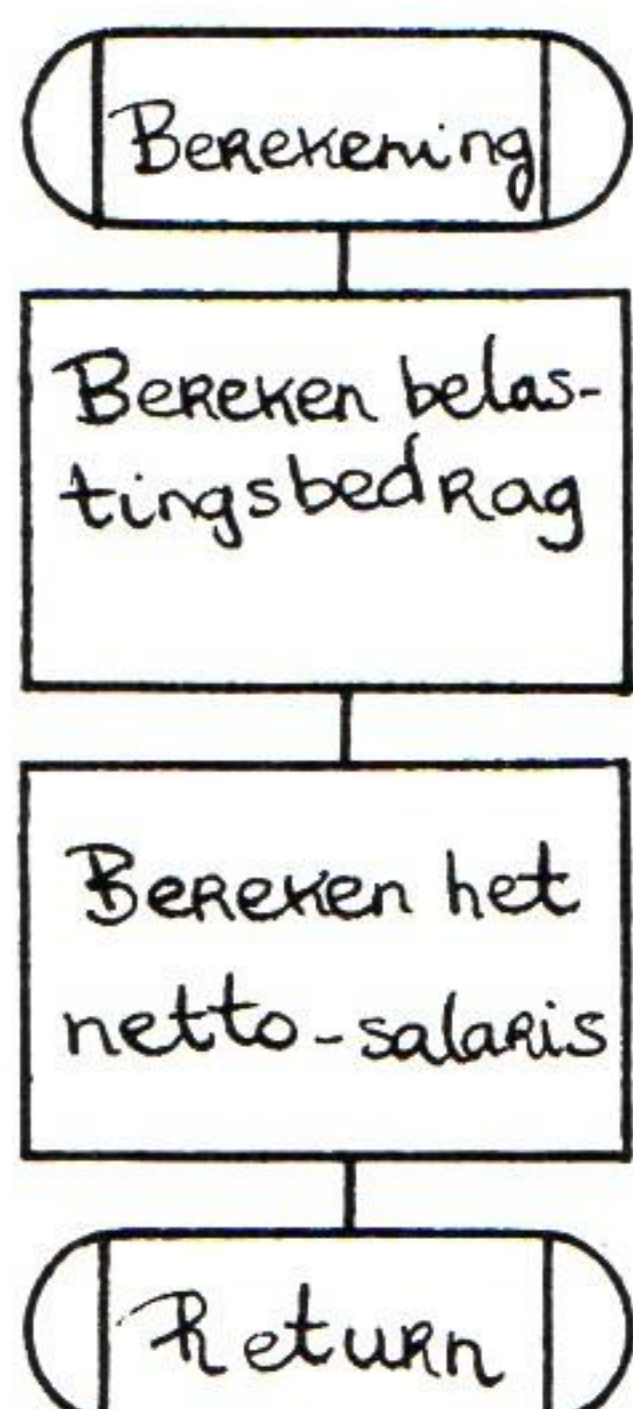 Berekening
Bereken belas-
tingsbedrag
Bereken het
netto-salaris
Return